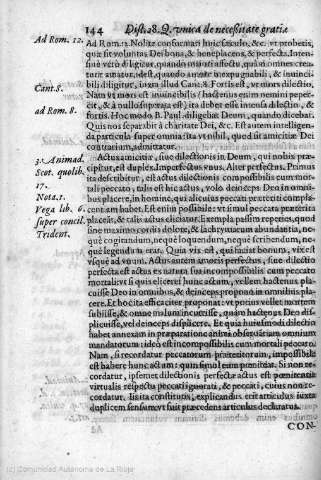 144 Dist. 28. Q. vnica de necessitate gratiæ
Ad Rom. 12.
Ad Rom. 12. Nolite conformari huic seculo, &c. vt probetis,
quæ sit voluntas Dei bona, & beneplacens, & perfecta. Inten-
siuè verò diligitur, quando amore
diligitur, iuxta illud Cant. 8. Fortis est, vt mors dilectio,
Cant. 8.
Nam vt mors est inuincibilis
cit, & à nulla superata est; ita debet esse intensa dilectio, &
ad Rom. 8.
fortis. Hoc modo B. Paul. diligebat Deum, quando dicebat.
Quis nos separabit à charitate Dei, &c. Est autem intelligen-
da particula super omnia ita vt nihil, quod sit amicitiæ Dei
contrarium, admittatur.
3. Animad.
Scot. quolib.
17.
Nota. 1.
Vega lib. 6.
super concil.
Trident.
Actus amicitiæ, siue dilectionis in Deum, qui nobis præ-
cipitur, est duplex. Imperfectus vnus. Alter perfectus. Primus
ita describitur, est actus dilectionis compossibilis cum mortali
peccato, talis est hic actus, volo deinceps Deo in omni-
bus placere, in homine, qui alicuius peccati præteriti compla-
centiam haberet. Est enim possibile: vt simul peccata præterita
placeãt, & talis actus eliciatur. Exempla passim reperies, quod
sine maximo cordis dolore, & lachrymarum abundantia, ne-
que cogitandum, neque loquendum, neque scribendum, ne-
que legendum erat. Quia vix est, qui faciat bonum, vix est
vsque ad vnum. Actus autem amoris perfectus, siue dilectio
perfecta est actus ex natura sua incompossibilis cum peccato
mortali
cuisse Deo in omnibus, & deinceps proponit in omnibus pla-
cere. Et hoc ita efficaciter proponat: vt potius vellet mortem
subijsse, & omne malum incurrisse, quàm hactenus Deo dis-
plicuisse, vel deinceps displicere. Et quia huiusmodi dilectio
habet annexam in præparatione animi obseruantiam omnium
mandatorum: ideò est incompossibilis cum mortali peccato.
Nam, si recordatur peccatorum præteritorum, impossibile
est habere hunc actum: quin simul eum pœniteat. Si non re-
cordatur, ipsemet dilectionis perfectæ actus est pœnitentia
virtualis respectu peccati ignorati, & peccati, cuius non re-
cordatur. His ita constitutis, explicandus erit articulus iuxta
duplicem sensum vt fuit præcedens articulus declaratus.
CON-
(c) Comunidad Autónoma de La Rioja